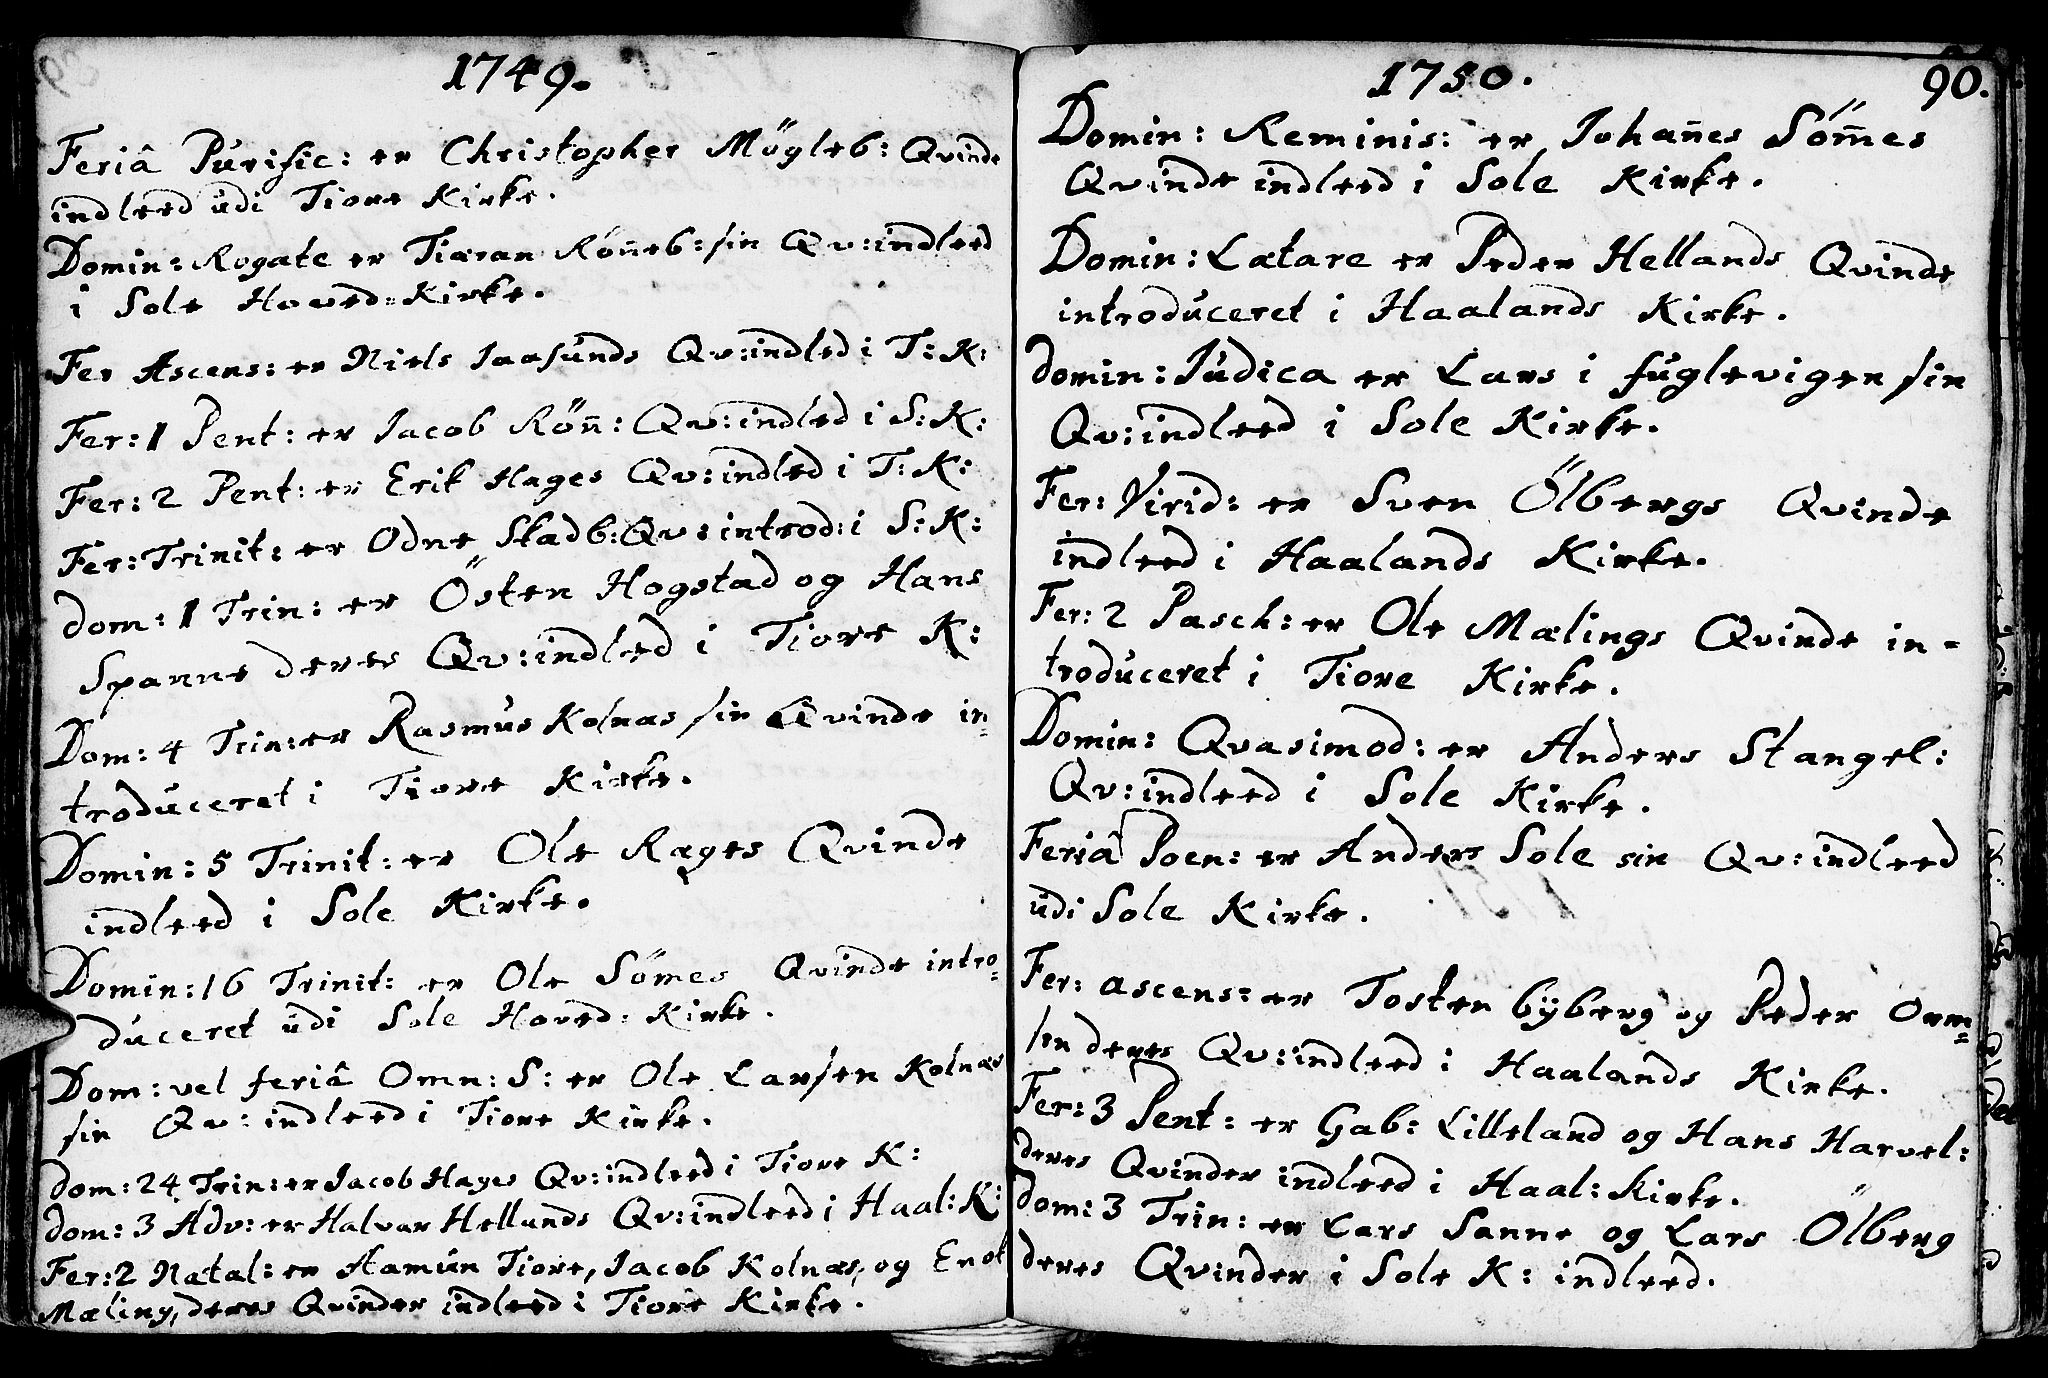 1749.
Feriâ Purific: er Christopher Mögleb: Qvinde
indleed udi Tiore Kirke.
Domin: Rogate er Tiæran Rön̄eb: sin Qv: indleed
i Sole Hoved=Kirke.
Fer Ascens: er Niels Jaasunds Qv: indled i T: K:
Fer: 1 Pent: er Jacob Rön̄: Qv: indled i S: K:
Fer: 2 Pent: er Erik Hages Qv: indled i T: K:
Fer: Trinit: er Odne Skadb: Qv: introd: i S: K:
dom: 1 Trin: er Östen Hogstad og Hans
Spanne deres Qv: indled i Tiore K:
Dom: 4 Trin: er Rasmus Kolnas sin Qvinde in=
troduceret i Tiore Kirke.
Domin: 5 Trinit: er Ole Ræges Qvinde
indleed i Sole Kirke.
Domin: 16 Trinit: er Ole Sömes Qvinde intro=
duceret udi Sole Hoved: Kirke.
Dom: vel feriâ Omn: S: er Ole Larsen Kolnæs
sin Qv: indleed i Tiore Kirke.
dom: 24 Trin: er Jacob Hages Qv: indleed i Tiore K:
dom: 3 Adv: er Halvar Hellands Qv: indleed i Haal: K:
Fer: 2 Natal: er Aamun Tiore, Jacob Kolnæs, og Enok
Mæling, deres Qvinder indleed i Tiore Kirke.
1750.
90.
Domin: Reminis: er Johan̄es Söm̄es
Qvinde indleed i Sole Kirke.
Domin: Lætare er Peder Hellands Qvinde
introduceret i Haalands Kirke.
domin: Judica er Lars i fuglevigen sin
Qv: indleed i Sole Kirke.
Fer: Virid: er Sven Ölbergs Qvinde
indleed i Haalands Kirke.
Fer: 2 Pasch: er Ole Mælings Qvinde in=
troduceret i Tiore Kirke.
Domin: Qvasimod: er Anders Stangel:
Qv: indleed i Sole Kirke.
Feriâ Poen: er Anders Sole sin Qv: indleed
udi Sole Kirke.
Fer: ascens: er Tosten byberg og Peder Orm=
sen deres Qv: indleed i Haalands Kirke.
Fer: 3 Pent: er Gab: Lilleland og Hans Harvel:
deres Qvinder indleed i Haal: Kirke.
dom: 3 Trin: er Lars Sanne og Lars Ölberg
deres Qvinder i Sole K: indleed.